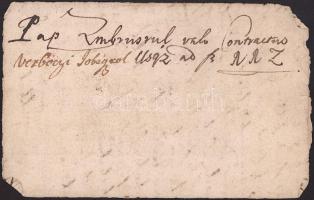 Pap Ambrusrul valo Contractus
Verböczi Jobigeol 1692 ad fr N N Z